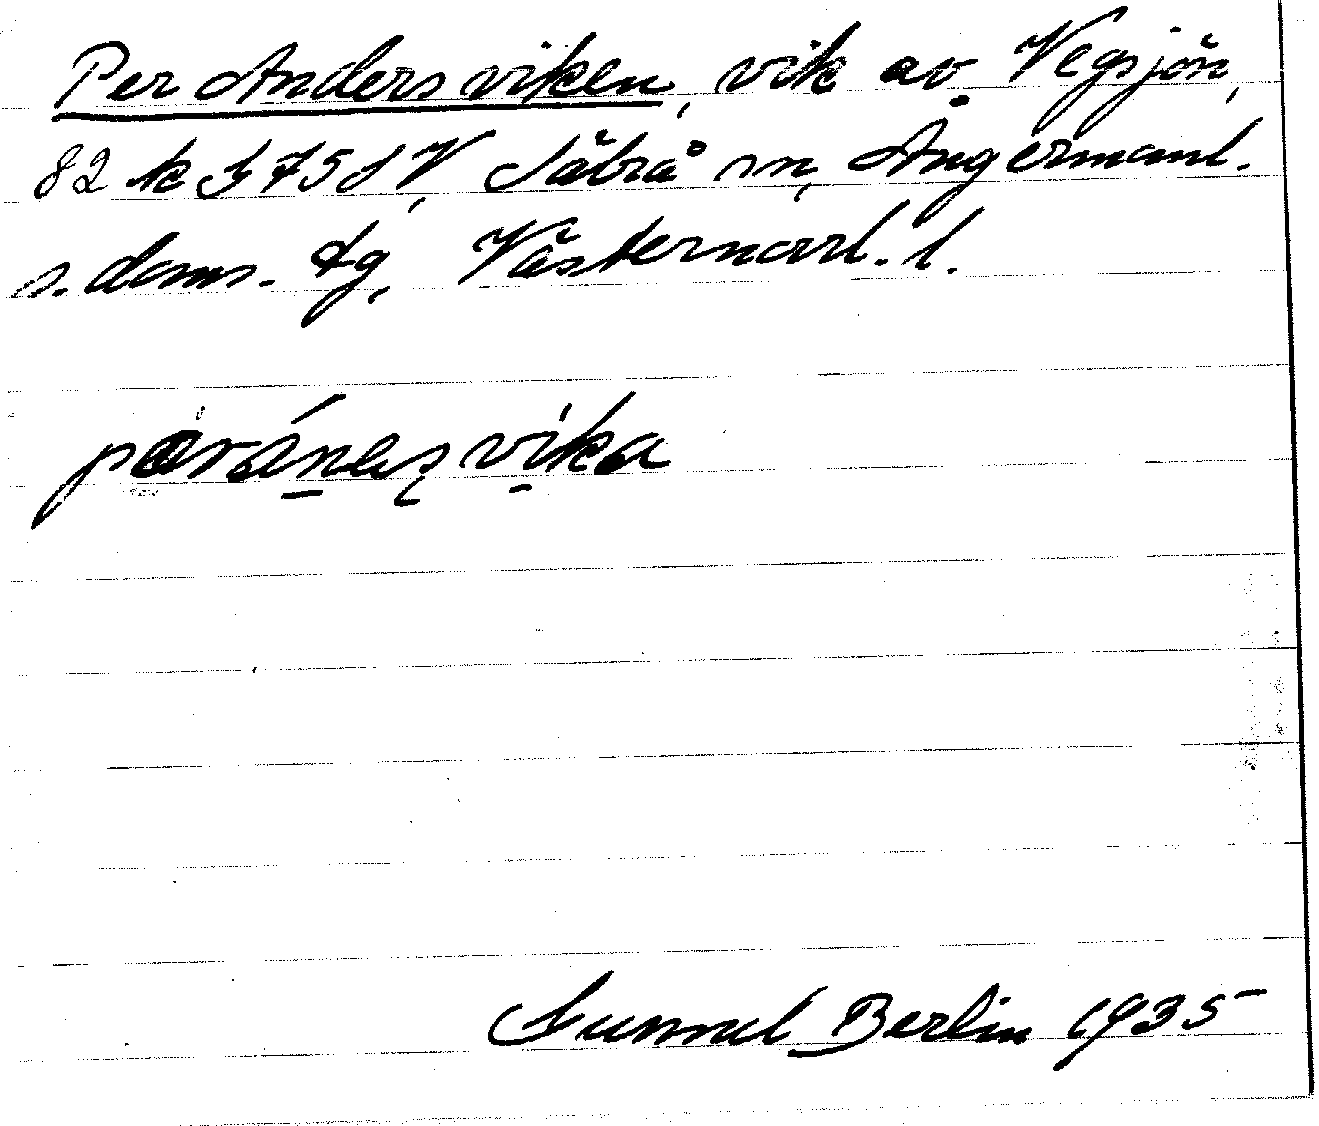 Per Andersviken, vik av Vegsjön,
82 k 3 75 d V, Säbrå sn, Ångermanl.
s. doms. tg, Västernorrl. l.
Gunnel Berlin 1935